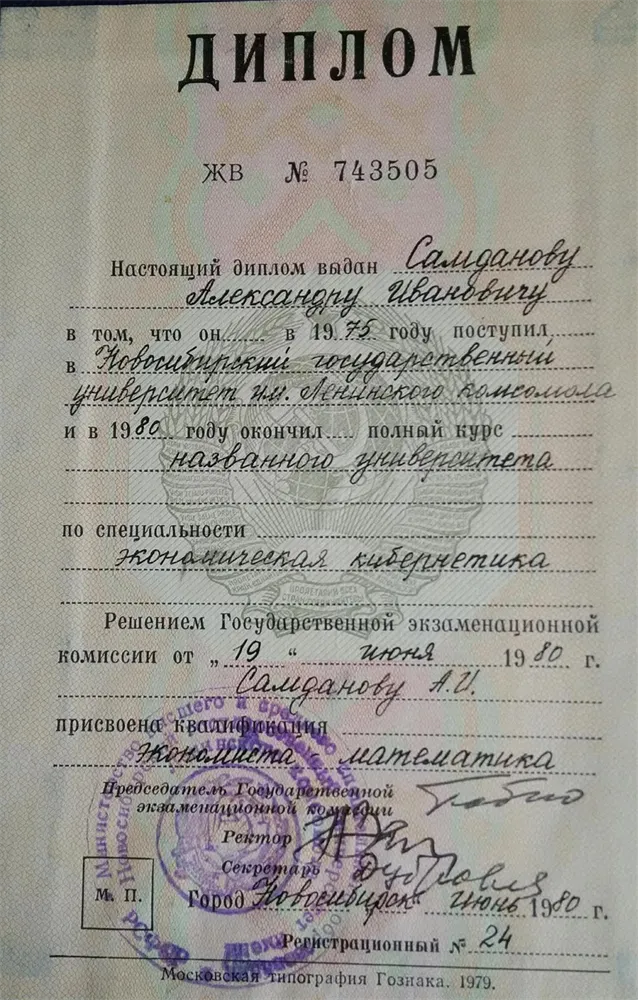 ДИПЛОМ
ЖВ № 743505
Настоящий диплом выдан Самданову
Александру Ивановичу
в том, что он в 1975 году поступил
в Новосибирский государственный
университет им. Ленинского комсомола
и в 1980 году окончил полный курс
названного университета
по специальности
экономическая кибернетика
Решением Государственной экзаменационной
комиссии от „19“ июня 1980 г.
Самданову А.И.
присвоена квалификация
экономиста математика
Председатель Государственной
экзаменационной комиссии
Ректор
Секретарь
М. П.
Город Новосибирск июнь 1980 г.
Регистрационный № 24
Московская типография Гознака. 1979.